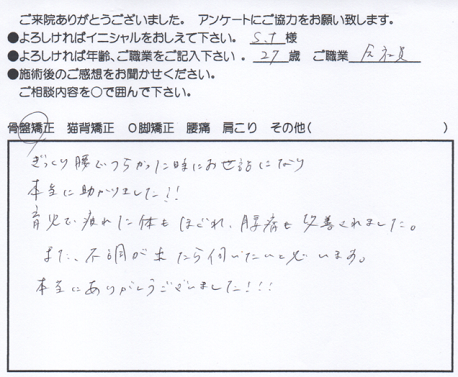 ご来院ありがとうございました。 アンケートにご協力をお願い致します。
●よろしければイニシャルをおしえて下さい。 S.T 様
●よろしければ年齢、ご職業をご記入下さい。 27 歳 ご職業 会社員
●施術後のご感想をお聞かせください。
ご相談内容を○で囲んで下さい。
骨盤矯正 猫背矯正 O脚矯正 腰痛 肩こり その他( )
ぎっくり腰でつらかった時にお世話になり
本当に助かりました!!
育児で疲れた体もほぐれ、腰痛も改善されました。
また、不調が出たら伺いたいと思います。
本当にありがとうございました!!!